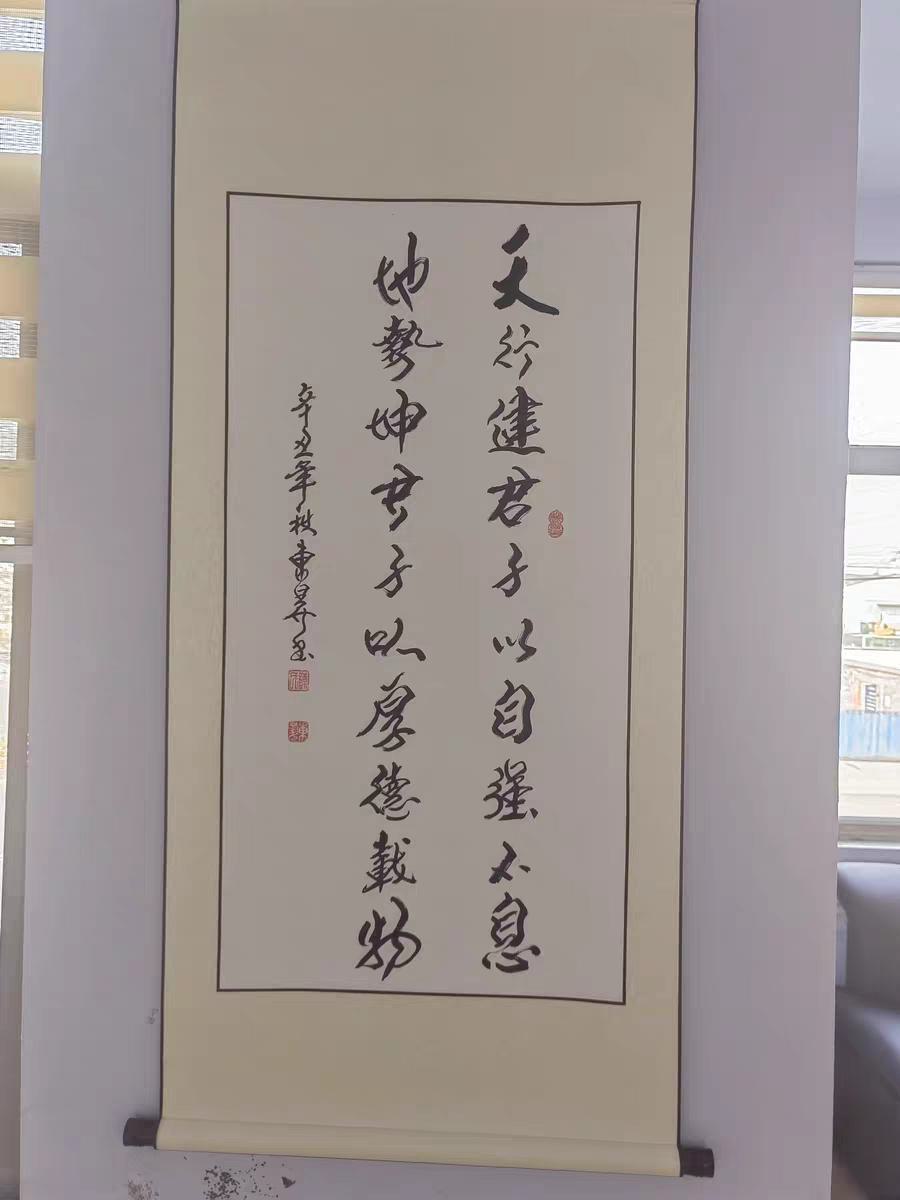 天行健君子以自强不息
地勢坤君子以厚德載物
辛丑年秋東昇书